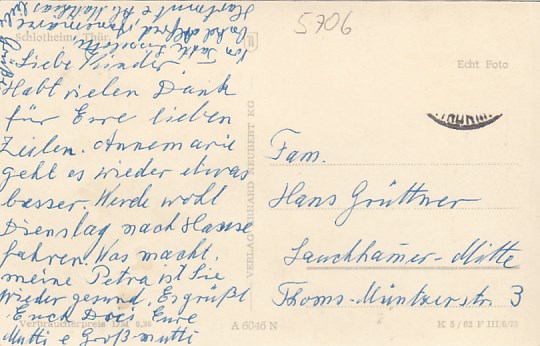 5706
Schlotheim, Thür.
Echt Foto
Liebe Kinder,
Habt vielen Dank
für Eure lieben
Zeilen. Annemarie
geht es wieder etwas
besser. Werde wohl
Dienstag nach Hause
fahren. Was macht
meine Petra ist Sie
wieder gesund. Es grüßt
Euch Drei's Eure
Mutti e Großmutti
VERLAG ERHARD NEUBERT KG
Fam.
Hans Grüttner
Lauchhamer-Mitte
Thoms-Müntzerstr. 3
Verbraucherpreis DM 0,20
A 6046 N
K 5/62 F III/6/23